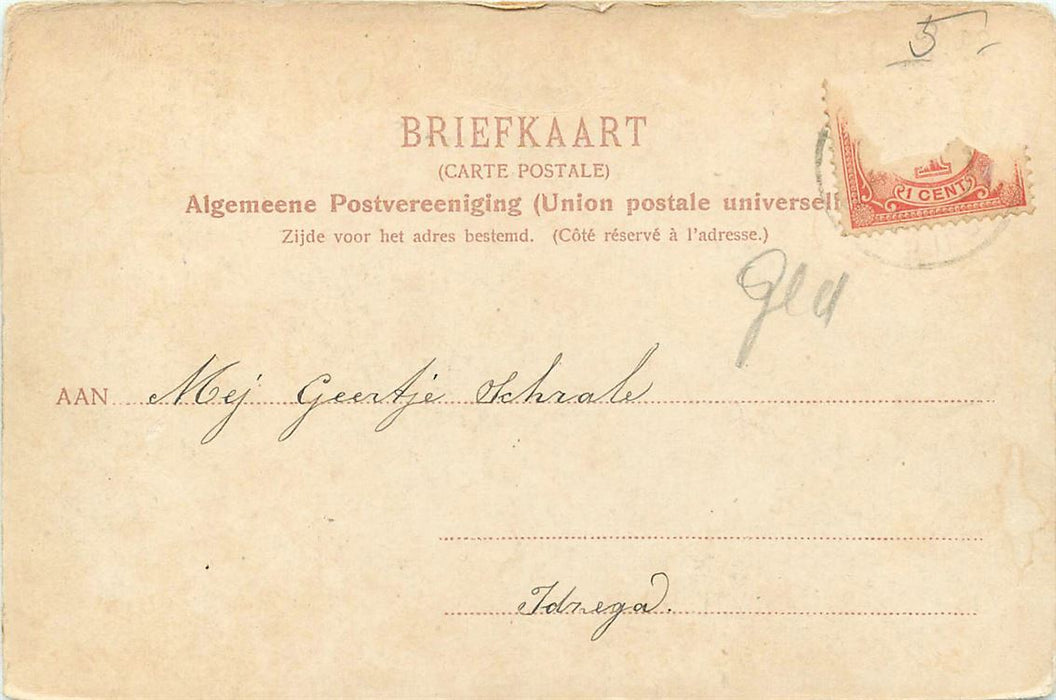 5
BRIEFKAART
(CARTE POSTALE)
Algemeene Postvereeniging (Union postale universell
Zijde voor het adres bestemd. (Côté réservé à l'adresse.)
1 CENT
Gld
AAN Mej Geertje Schrale
Idzega.